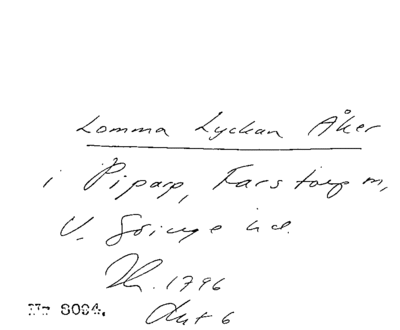 Lomma Lyckan Åker
i Piparp, Farstorp sn,
V. Göinge hd.
1796
Nr 8094. Akt 6